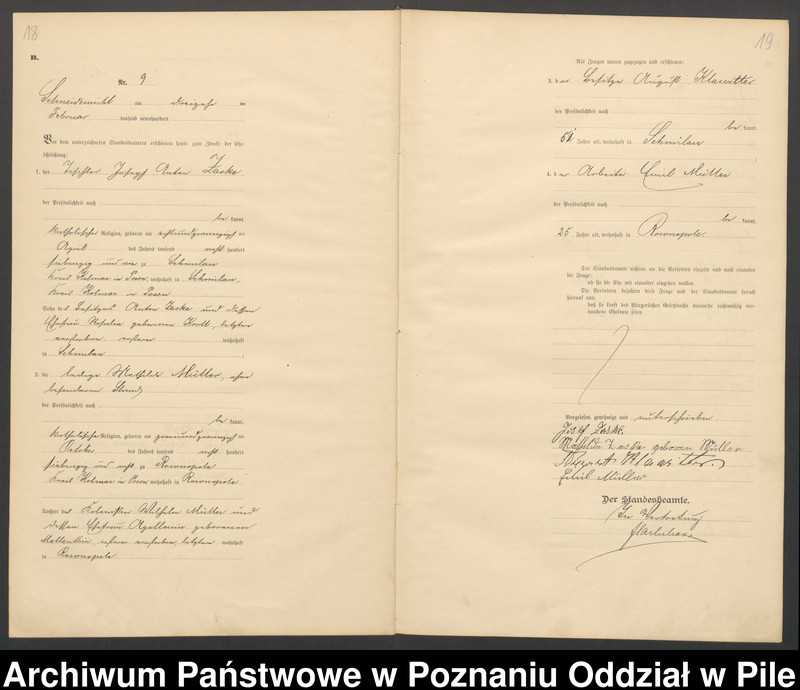 18
B.
Nr. 9
Schneidemühl am dreizehnten
Februar tausend neunhundert
Vor dem unterzeichneten Standesbeamten erschienen heute zum Zwecke der Ehe-
schließung:
1. der Tischler Joseph Anton Zaske
der Persönlichkeit nach
be kannt,
katholischer Religion, geboren am achtundzwanzigsten
April des Jahres tausend acht hundert
siebenzig und zu Schmilau
Kreis Kolmar in Posen, wohnhaft in Schmilau,
Kreis Kolmar in Posen
Sohn des Besitzers Anton Zaske und dessen
Ehefrau Rosalie geborenen Kroll, letztere
verstorben, ersterer wohnhaft
in Schmilau
2. die ledige Mathilde Müller, ohne
besonderen Stand,
der Persönlichkeit nach
be kannt,
katholischer Religion, geboren am
October des Jahres tausend acht hundert
siebenzig und acht zu Rownopole
Kreis Kolmar in Posen, wohnhaft in Rownopole
Tochter des Kolonisten Wilhelm Müller und
dessen Ehefrau Apollonia geborenen
ersterer verstorben, letztere wohnhaft
in Rownopole
19
Als Zeugen waren zugezogen und erschienen:
3. der Besitzer August Klawitter
der Persönlichkeit nach
be kannt,
51 Jahre alt, wohnhaft in Schmilau
4. der Arbeiter Emil Müller
der Persönlichkeit nach
be kannt,
25 Jahre alt, wohnhaft in Rownopole.
Der Standesbeamte richtete an die Verlobten einzeln und nach einander
die Frage:
ob sie die Ehe mit einander eingehen wollen.
Die Verlobten bejahten diese Frage und der Standesbeamte sprach
hierauf aus,
daß sie kraft des Bürgerlichen Gesetzbuchs nunmehr rechtmäßig ver-
bundene Eheleute seien.
Vorgelesen, genehmigt und unterschrieben
Josef Zaske.
Mathilde Zaske geborene Müller
August Klawitter
Emil Müller
Der Standesbeamte.
In Vertretung
Archiwum Państwowe w Poznaniu Oddział w Pile